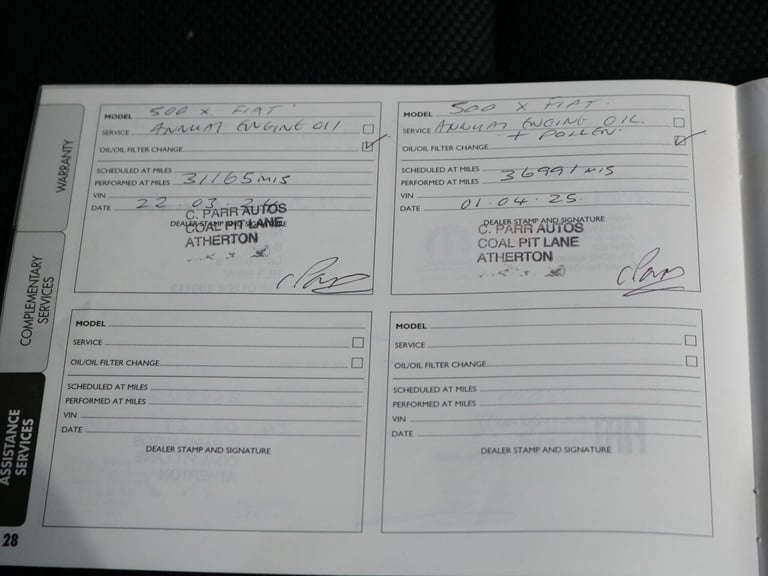 WARRANTY
COMPLEMENTARY
SERVICES
ASSISTANCE
SERVICES
28
MODEL 500 X FIAT.
SERVICE ANNUAL ENGINE OIL
OIL/OIL FILTER CHANGE
SCHEDULED AT MILES
PERFORMED AT MILES 31165 mls
VIN
DATE 22.03.24
DEALER STAMP AND SIGNATURE
C. PARR AUTOS
COAL PIT LANE
ATHERTON
C Parr
MODEL 500 X FIAT.
SERVICE ANNUAL ENGINE OIL.
+ POLLEN.
OIL/OIL FILTER CHANGE
SCHEDULED AT MILES
PERFORMED AT MILES 36991 mls
VIN
DATE 01.04.25.
DEALER STAMP AND SIGNATURE
C. PARR AUTOS
COAL PIT LANE
ATHERTON
C Parr
MODEL
SERVICE
OIL/OIL FILTER CHANGE
SCHEDULED AT MILES
PERFORMED AT MILES
VIN
DATE
DEALER STAMP AND SIGNATURE
MODEL
SERVICE
OIL/OIL FILTER CHANGE
SCHEDULED AT MILES
PERFORMED AT MILES
VIN
DATE
DEALER STAMP AND SIGNATURE